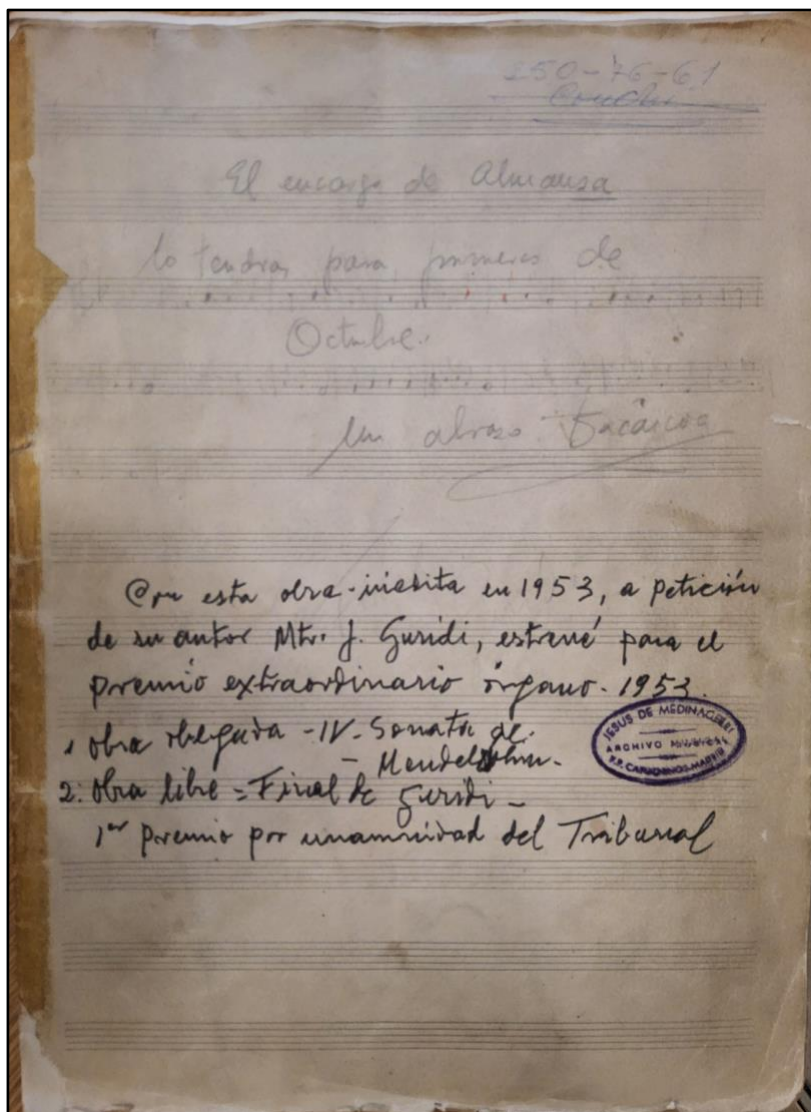 250-76-61
El encargo de Almansa
lo tendras para primeros de
Octubre.
Un abrazo
Con esta obra-inedita en 1953, a petición
de su autor Mtro. J. Guridi, estrené para el
premio extraordinario órgano. 1953.
1 obra obligada - IV. Sonata de.
- Mendelsohn.
2: obra libre = Final de Guridi -
1er premio por unanimidad del Tribunal
JESUS DE MEDINACELI
ARCHIVO MUSICAL
P.P. CAPUCHINOS-MADRID